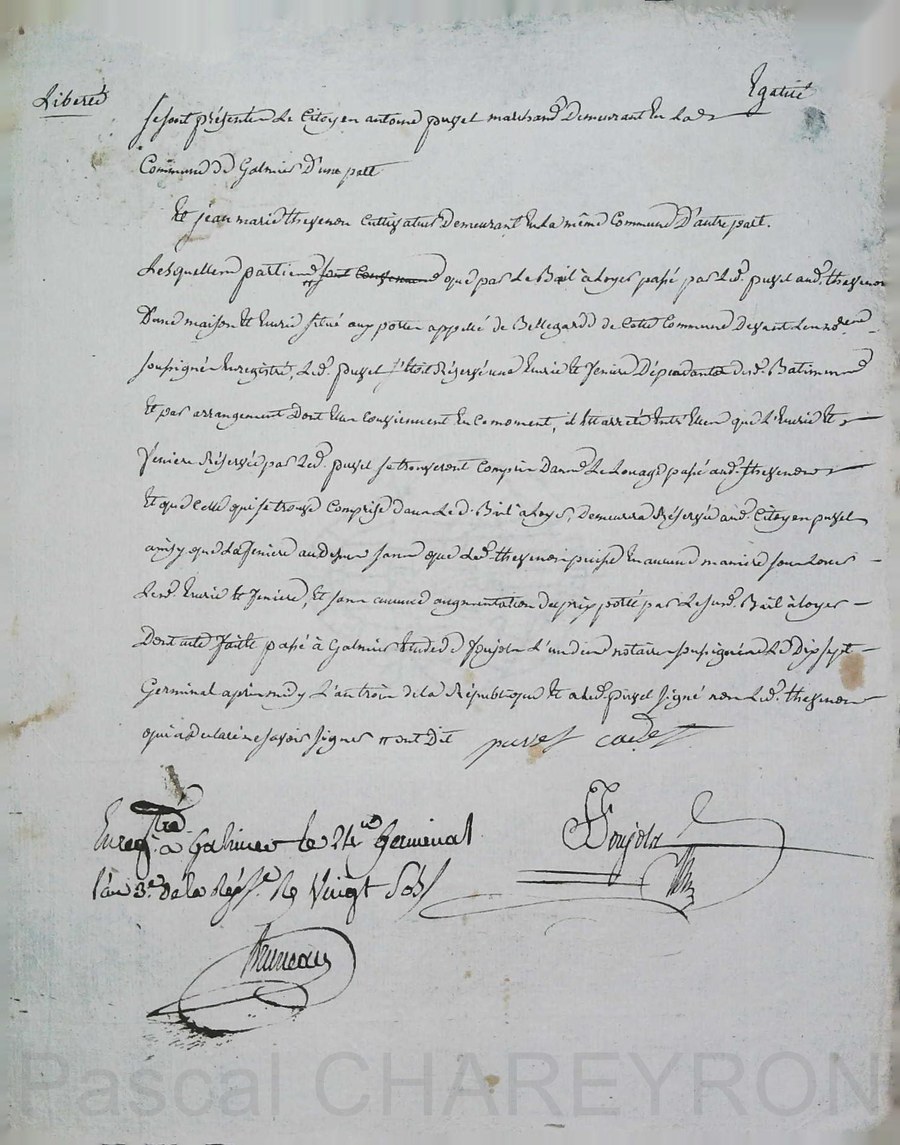 Liberté
Egalité
se sont présentés Le Citoyen antoine puvel marchand Demeurant En La
Commune de Galmier D'une part
Et jean marie thevenon Cultivateur Demeurant En La même Commune D'autre part.
Lesquelles parties sont Convenues que par Le Bail à Loyer passé par Led. puvel aud. thevenon
D'une maison Et Ecurie situé aux portes appellé de Bellegarde de Cette Commune Devant Les no.res
soussigné Enregistré, Led. puvel s'étoit Réservé une Ecurie Et feniere Dépendante desd. Batimens
Et par arrangement Dont Elles Conviennent En Ce moment, il Est arrêté Entr'Elles que L'Ecurie Et
feniere Réservée par Led. puvel se trouveront Comprises Dans Le Louage passé aud. thevenon
Et que Celle qui se trouve Comprise dans Le d. Bail à Loyer, Demeurera Réservée aud. Citoyen puvel
ainsy que La feniere au Dessus sans que Led. thevenon puisse En aucune maniere sous Louer
Lesd. Ecurie Et feniere, Et sans aucune augmentation du prix porté par Le susd. Bail à Loyer
Dont acte fait Et passé à Galmier Etude de Poujols L'un des notaires soussignés Le Dix sept
Germinal après midy L'an trois de la République Et a Led. puvel signé non Led. thevenon
qui a Déclaré ne savoir signer
puvel cadet
Enreg.tré à Galmier le 24 Germinal
l'an 3.e de la Rép.e R Vingt Sols
Bruneau
Poujols
Pascal CHAREYRON